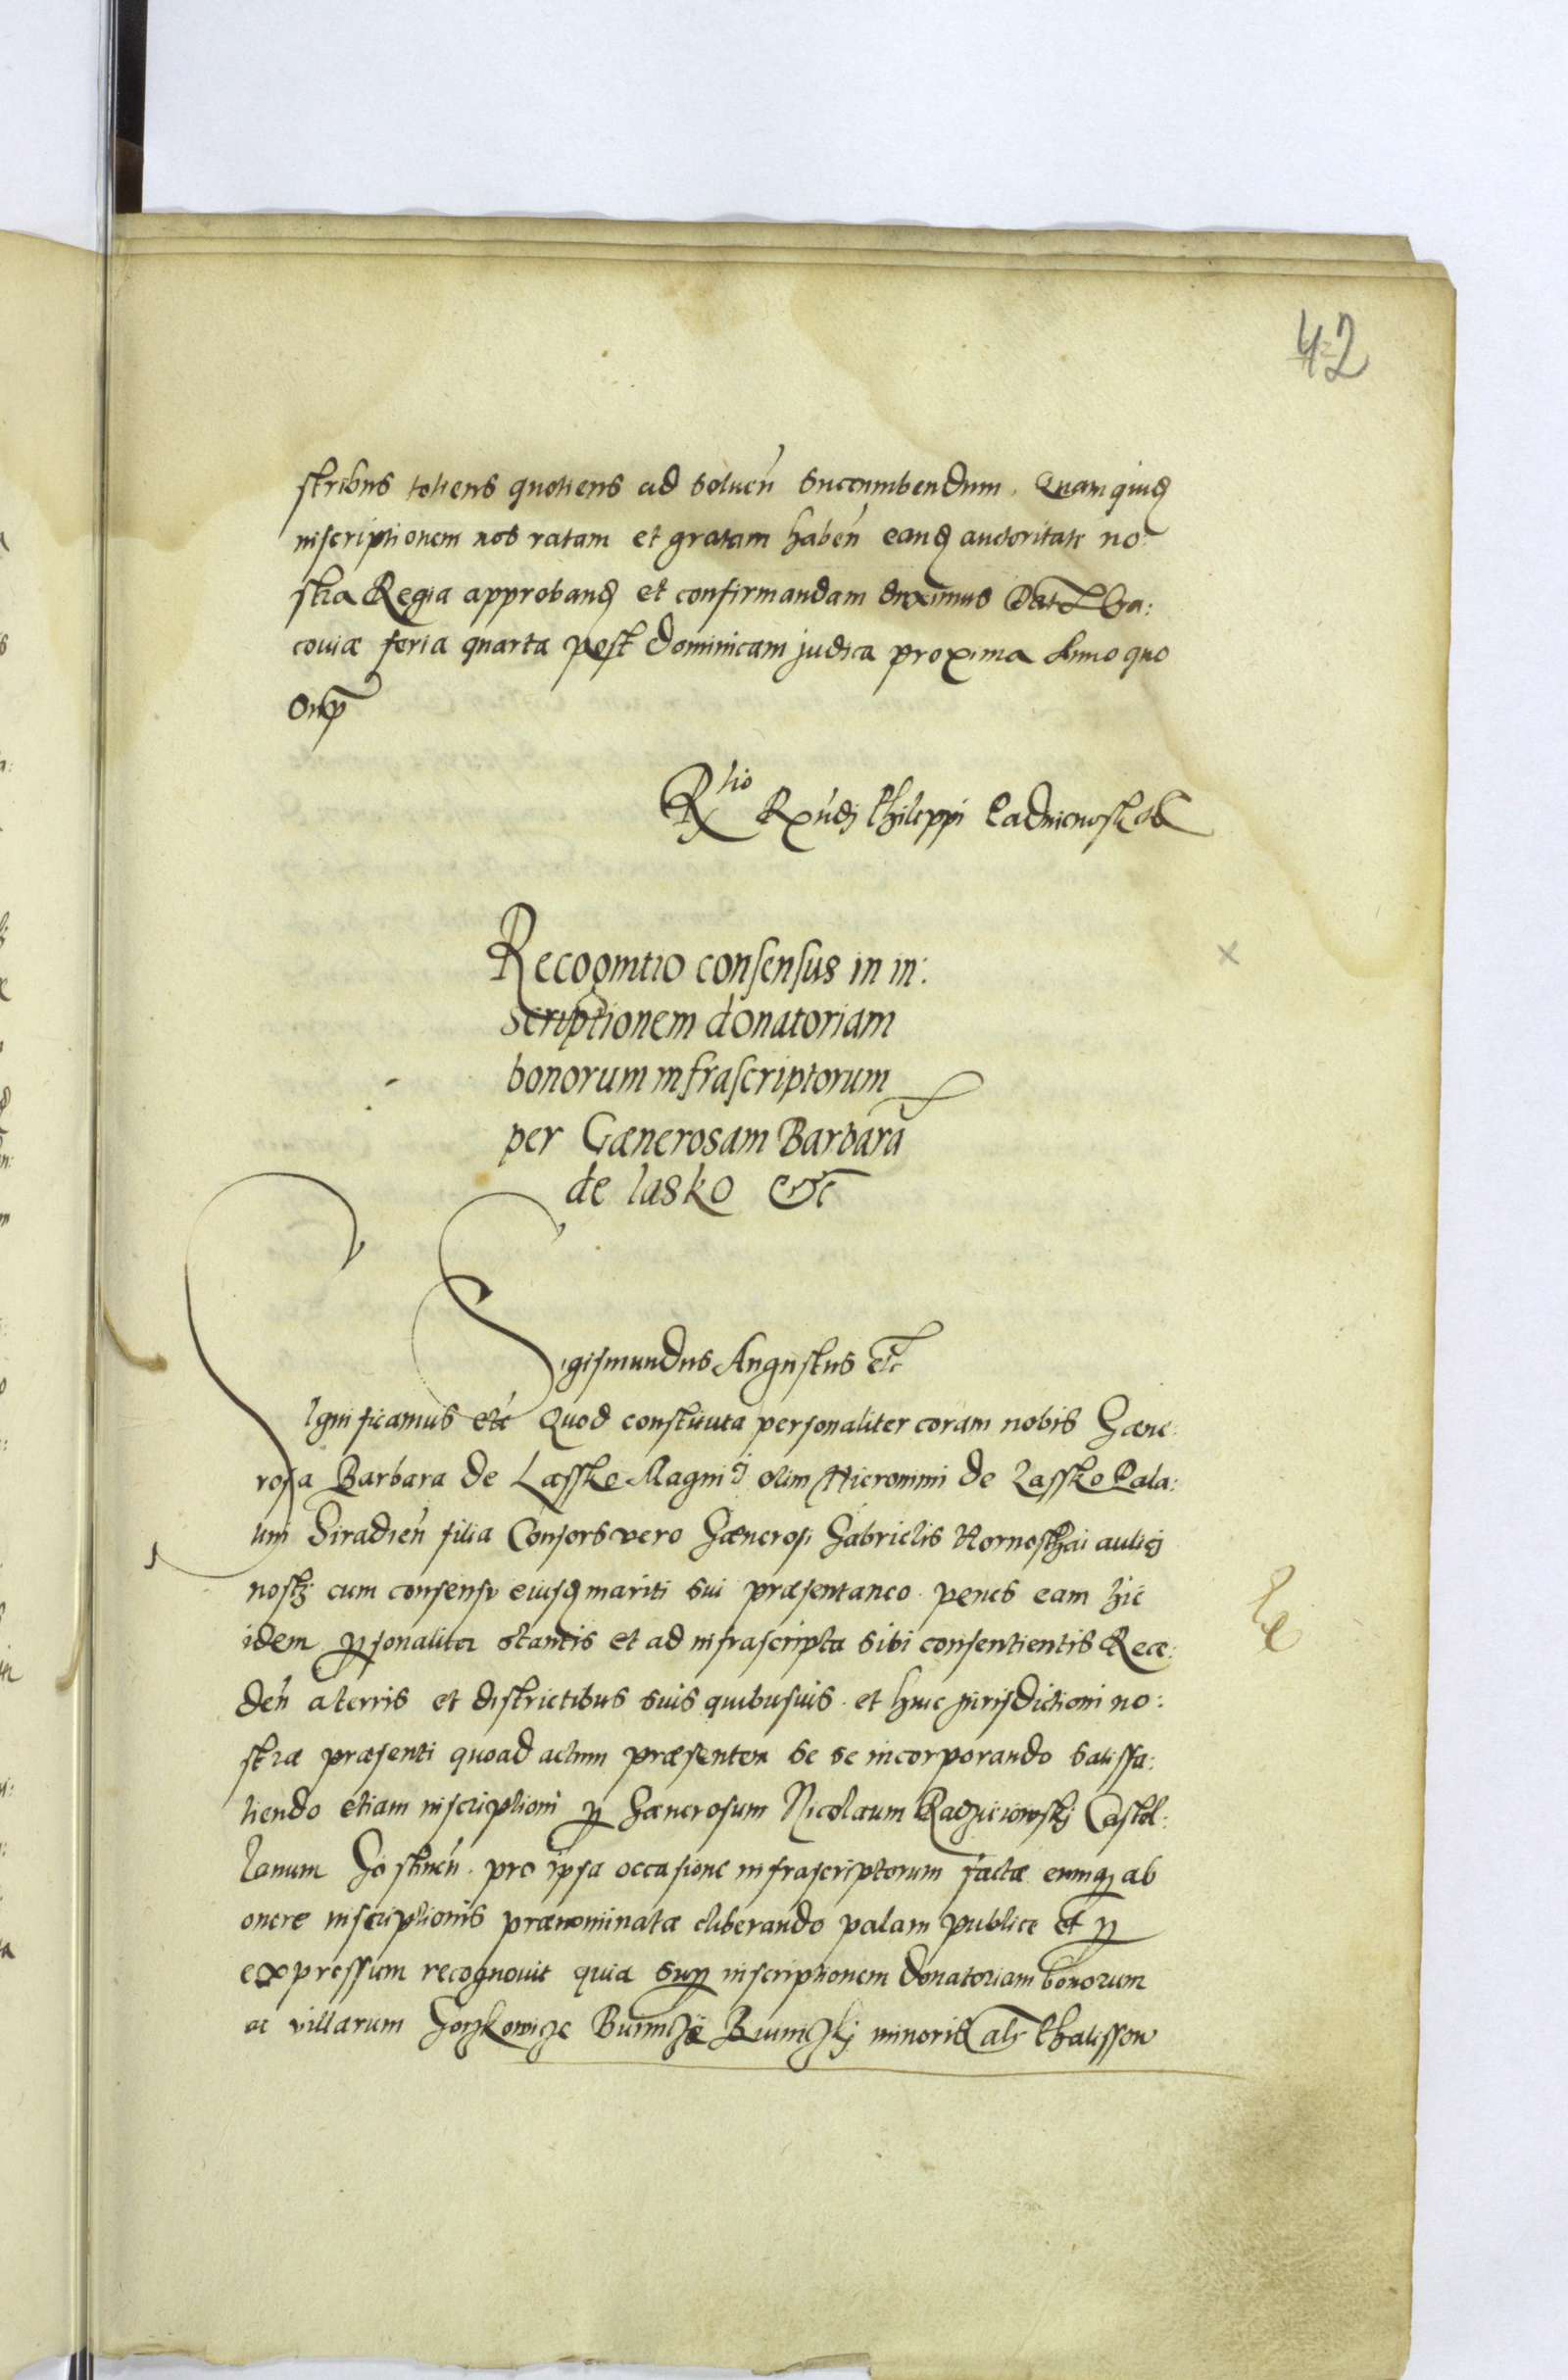 42
stribus totiens quotiens ad soluen̄ succumbendum. Quam quidē
inscriptionem nos ratam et gratam haben̄ eandē auctoritate no:
stra Regia approbandā et confirmandam duximus Dat Cra:
couiæ feria quarta post Dominicam judica proxima Anno quo
supra
Rtio Rndi Philippi Padnieuoski etc
Recognitio consensus in in:
scriptionem donatoriam
bonorum infrascriptorum
per Gænerosam Barbarā
de lasko etc
Sigismundus Augustus etc
Significamus etc Quod constituta personaliter coram nobis Gæne:
rosa Barbara de Lassko Magnici olim Hieronimi de Lassko Pala:
tini Siradien̄ filia Consors vero Gænerosi Gabrielis Hornosthai aulici
nostri cum consensu eiusdē mariti sui præsentaneo penes eam hic
idem personaliter stantis et ad infrascripta sibi consentientis Rece:
den̄ a terris et districtibus suis quibusuis et huic jurisdictioni no:
stræ præsenti quoad actum præsentem se se incorporando satisfa:
tiendo etiam inscriptioni per Gænerosum Nicolaum Radzieiowski Castel:
lanum Gostinen̄ pro ipsa occasione infrascriptorum factæ eumq ab
onere inscriptionis prænominatæ eliberando palam publice et per
expressum recognouit quia super inscriptionem donatoriam bonorum
ac villarum minoris als